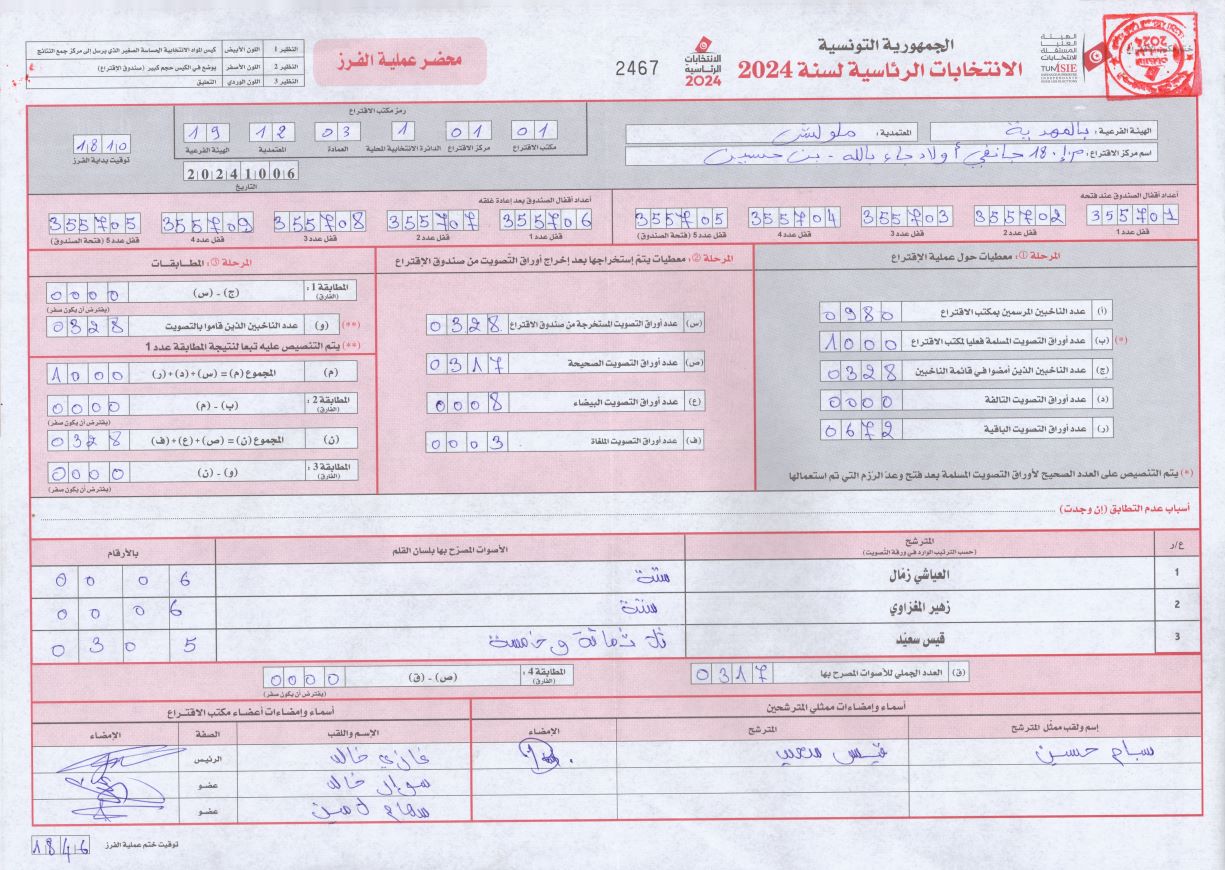 الجمهورية التونسية
الانتخابات الرئاسية لسنة 2024
الهيئة العليا المستقلة للانتخابات
TUNISIE
الانتخابات الرئاسية 2024
2467
محضر عملية الفرز
النظير 1 اللون الأبيض كيس المواد الانتخابية الحساسة الصغير الذي يرسل إلى مركز جمع النتائج
النظير 2 اللون الأصفر يوضع في الكيس حجم كبير (صندوق الاقتراع)
النظير 3 اللون الوردي التعليق
الهيئة الفرعية: بالمهدية المعتمدية: ملولش
اسم مركز الاقتراع: م.إ. 18 جانفي أولاد جاء بالله - بن حسين
رمز مكتب الاقتراع
01 01 1 03 12 19
مكتب الاقتراع مركز الاقتراع الدائرة الانتخابية المحلية العمادة المعتمدية الهيئة الفرعية
20241006
التاريخ
1810
توقيت بداية الفرز
أعداد أقفال الصندوق عند فتحه
355701 355702 355703 355704 355705
قفل عدد 1 قفل عدد 2 قفل عدد 3 قفل عدد 4 قفل عدد 5 (فتحة الصندوق)
أعداد أقفال الصندوق بعد إعادة غلقه
355706 355707 355708 355709 355705
قفل عدد 1 قفل عدد 2 قفل عدد 3 قفل عدد 4 قفل عدد 5 (فتحة الصندوق)
المرحلة ①: معطيات حول عملية الإقتراع
(أ) عدد الناخبين المرسمين بمكتب الاقتراع 0980
(*) (ب) عدد أوراق التصويت المسلمة فعليا لمكتب الاقتراع 1000
(ج) عدد الناخبين الذين أمضوا في قائمة الناخبين 0328
(د) عدد أوراق التصويت التالفة 0000
(ر) عدد أوراق التصويت الباقية 0672
(*) يتم التنصيص على العدد الصحيح لأوراق التصويت المسلمة بعد فتح وعد الرزم التي تم استعمالها
المرحلة ②: معطيات يتم إستخراجها بعد إخراج أوراق التصويت من صندوق الإقتراع
(س) عدد أوراق التصويت المستخرجة من صندوق الاقتراع 0328
(ص) عدد أوراق التصويت الصحيحة 0317
(ع) عدد أوراق التصويت البيضاء 0008
(ف) عدد أوراق التصويت الملغاة 0003
المرحلة ③: المطابقات
المطابقة 1: (الفارق) (ج) - (س) 0000
(يفترض أن يكون صفر)
(**) (و) عدد الناخبين الذين قاموا بالتصويت 0328
(**) يتم التنصيص عليه تبعا لنتيجة المطابقة عدد 1
(م) المجموع (م) = (س)+(د)+(ر) 1000
المطابقة 2: (الفارق) (ب) - (م) 0000
(يفترض أن يكون صفر)
(ن) المجموع (ن) = (ص)+(ع)+(ف) 0328
المطابقة 3: (الفارق) (و) - (ن) 0000
(يفترض أن يكون صفر)
أسباب عدم التطابق (إن وجدت)
ع/ر المترشح (حسب الترتيب الوارد في ورقة التصويت) الأصوات المصرح بها بلسان القلم بالأرقام
1 العياشي زمال ستة 0006
2 زهير المغزاوي ستة 0006
3 قيس سعيّد ثلاثمائة و خمسة 0305
(ق) العدد الجملي للأصوات المصرح بها 0317
المطابقة 4: (الفارق) (ص) - (ق) 0000
(يفترض أن يكون صفر)
أسماء وإمضاءات ممثلي المترشحين
إسم ولقب ممثل المترشح المترشح الإمضاء
حسين قيس سعيد
أسماء وإمضاءات أعضاء مكتب الاقتراع
الإسم واللقب الصفة الإمضاء
غازي خالد الرئيس
سوار خالد عضو
سهام عضو
توقيت ختم عملية الفرز 1846